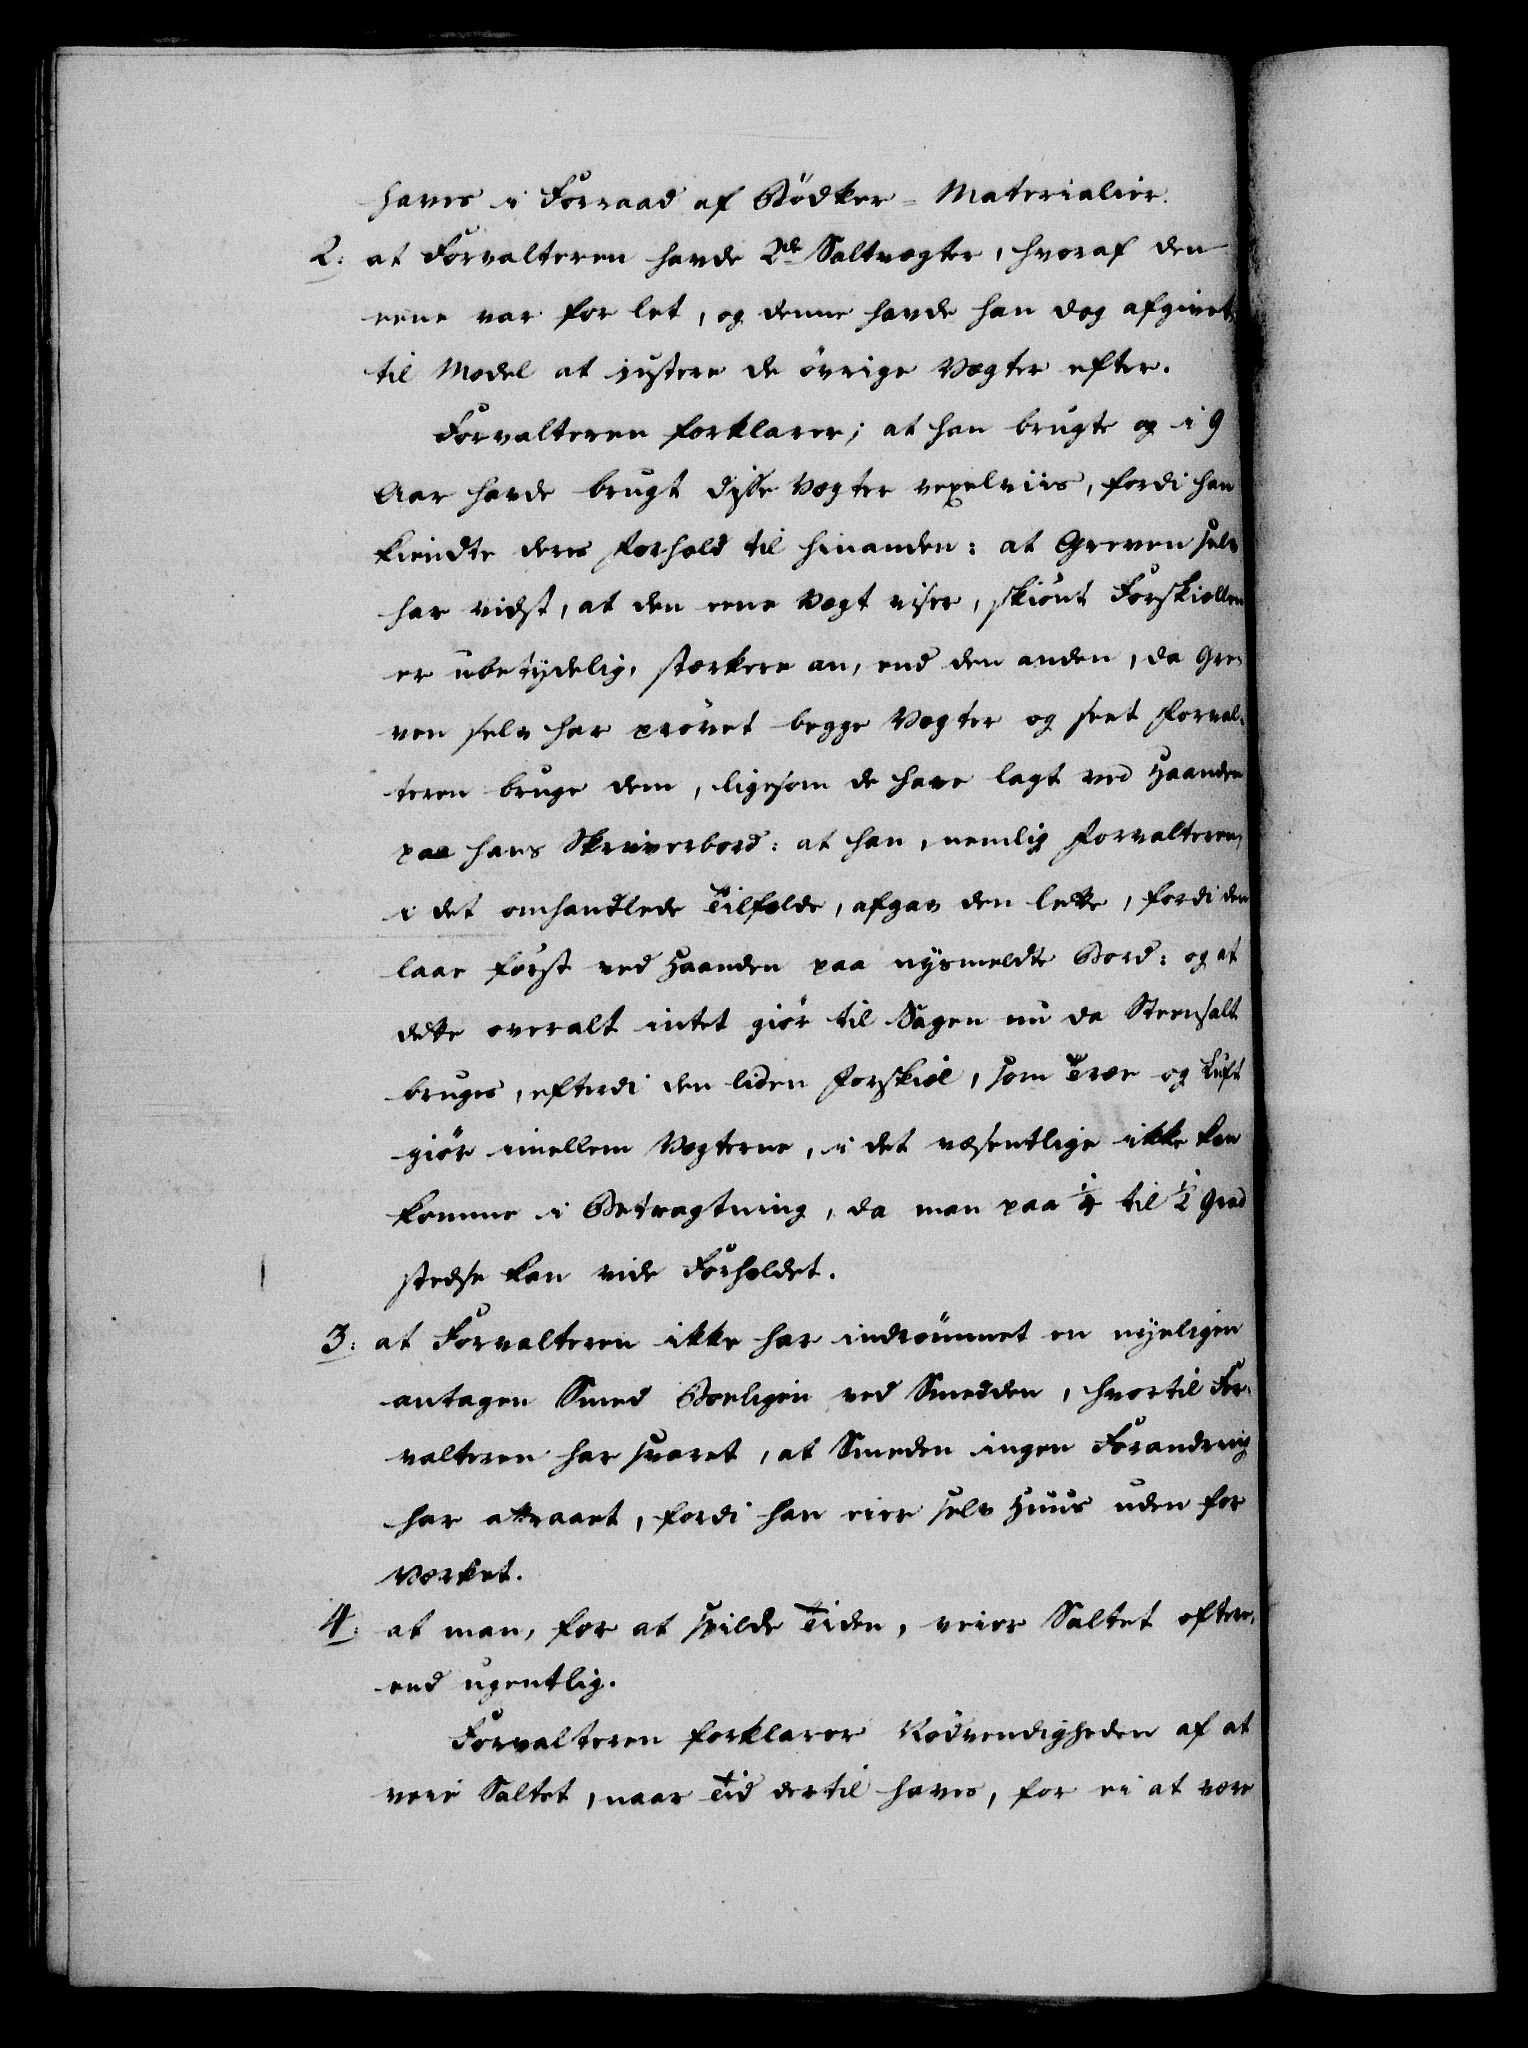 haves i Forraad af Bödker-Materialier.
2. at Forvalteren havde 2de Saltvægter, hvoraf den
eene var for let, og denne havde han dog afgivet
til Model at justere de övrige Vægter efter.
Forvalteren forklarer; at han brugte og i 9
Aar havde brugt disse Vægter vexelviis, fordi han
kiendte deres Forhold til hinanden: at Greven selv
har vidst, at den eene Vægt viser, skiönt Forskiellen
er ubetydelig, stærkere an, end den anden, da Gre-
ven selv har prövet begge Vægter og seet Forval-
teren bruge dem, ligesom de have lagt ved Haanden
paa hans Skriverbord: at han, nemlig Forvalteren,
i det omhandlede Tilfælde, afgav den lette, fordi den
laae först ved Haanden paa nysmeldte Bord: og at
dette overalt intet giör til Sagen nu da Steensalt
bruges, efterdi den liden Forskiel, som Træe og Luft
giör imellem Vægterne, i det væsentlige ikke kan
komme i Betragtning, da man paa 1/4 til 1/2 Grad
stedse kan vide Forholdet.
3. at Forvalteren ikke har indrömmet en nyeligen
antagen Smed Boeligen ved Smedden, hvortil For-
valteren har svaret, at Smeden ingen Forandring
har attraaet, fordi han eier selv Huus uden for
Værket.
4. at man, for at spilde Tiden, veier Saltet oftere,
end ugentlig.
Forvalteren forklarer Nödvendigheden af at
veie Saltet, naar Tid dertil haves, for ei at være